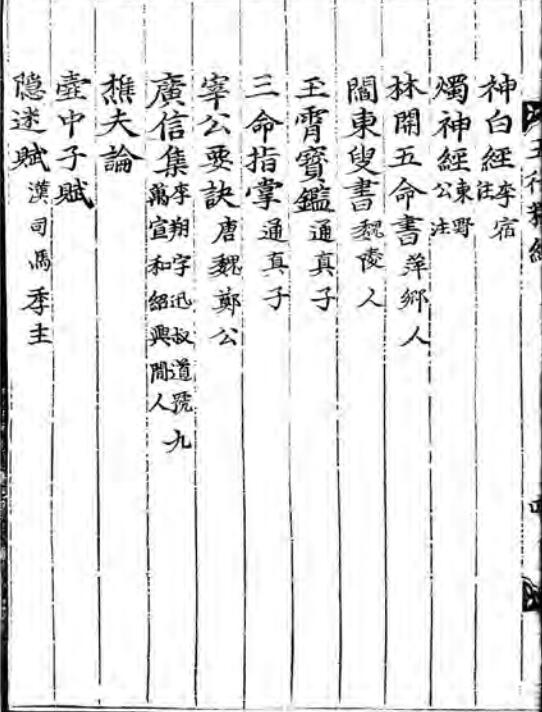 五行精紀
神白經李宿注
燭神經東野公注
林開五命書萍鄉人
閻東叟書魏陵人
玉霄寶鑑通真子
三命指掌通真子
宰公要訣唐魏鄭公
廣信集李翔字迅叔道號九萬宣和紹興間人
樵夫論
壺中子賦
隱迷賦漢司馬季主